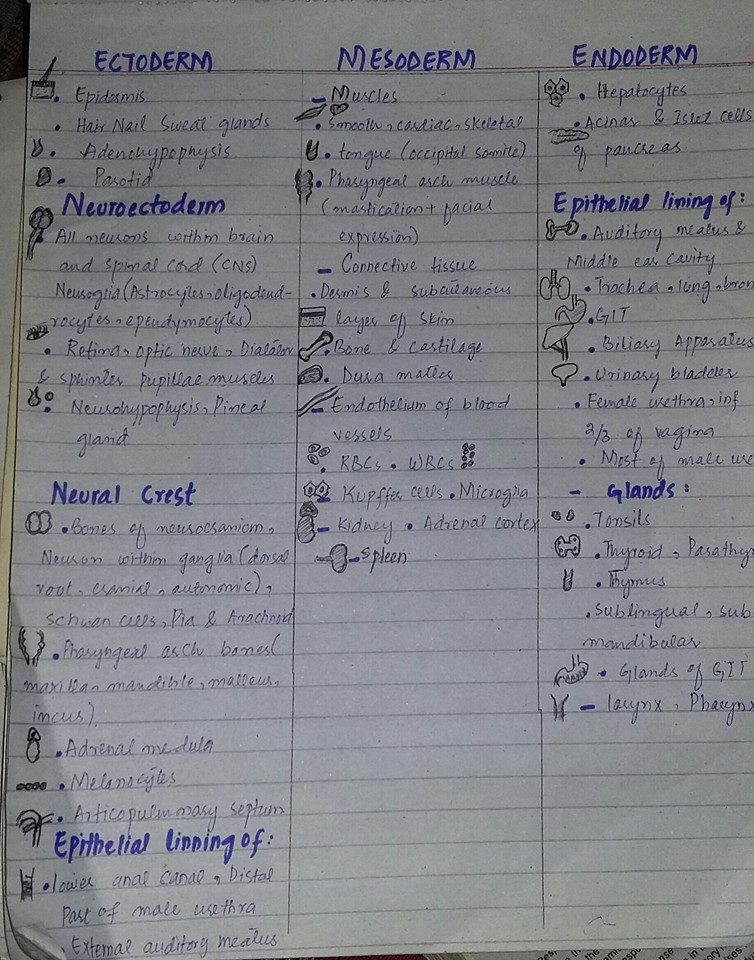 ECTODERM
• Epidermis
• Hair Nail Sweat glands
• Adenohypophysis
• Parotid
Neuroectoderm
• All neurons within brain
and spinal cord (CNS)
Neuroglia (Astrocytes, oligodend-
rocytes, ependymocytes)
• Retina, optic nerve, Dialator
& sphinter pupillae muscles
• Neurohypophysis, Pineal
gland
Neural Crest
• Bones of neurocraniom,
Neuron within ganglia (dorsal
root, cranial, autonomic),
Schwan cells, Pia & Arachnoid
• Pharyngeal arch bones (
maxilla, mandible, malleus,
incus)
• Adrenal medula
• Melanocytes
• Articopulmonary septum
Epithelial linning of:
• lower anal canal, Distal
Part of male urethra
• External auditory meatus
MESODERM
– Muscles
• Smooth, cardiac, skeletal
• tongue (occipital somite)
• Pharyngeal arch muscle
(mastication + facial
expression)
– Connective tissue
• Dermis & subcutaneous
layer of skin
• Bone & Cartilage
• Dura mater
– Endothelium of blood
vessels
• RBCs • WBCs
– Kupffer cells • Microglia
– Kidney • Adrenal cortex
– Spleen
ENDODERM
• Hepatocytes
• Acinar & Islet cells
of pancreas
Epithelial lining of:
• Auditory meatus &
Middle ear cavity
• Trachea, lung, bron
• GIT
• Biliary Apparatus
• Urinary bladder
• Female urethra, inf
2/3 of vagina
• Most of male ure
– Glands:
• Tonsils
• Thyroid, Parathy
• Thymus
• Sublingual, sub
mandibular
• Glands of GIT
– larynx, Pharynx